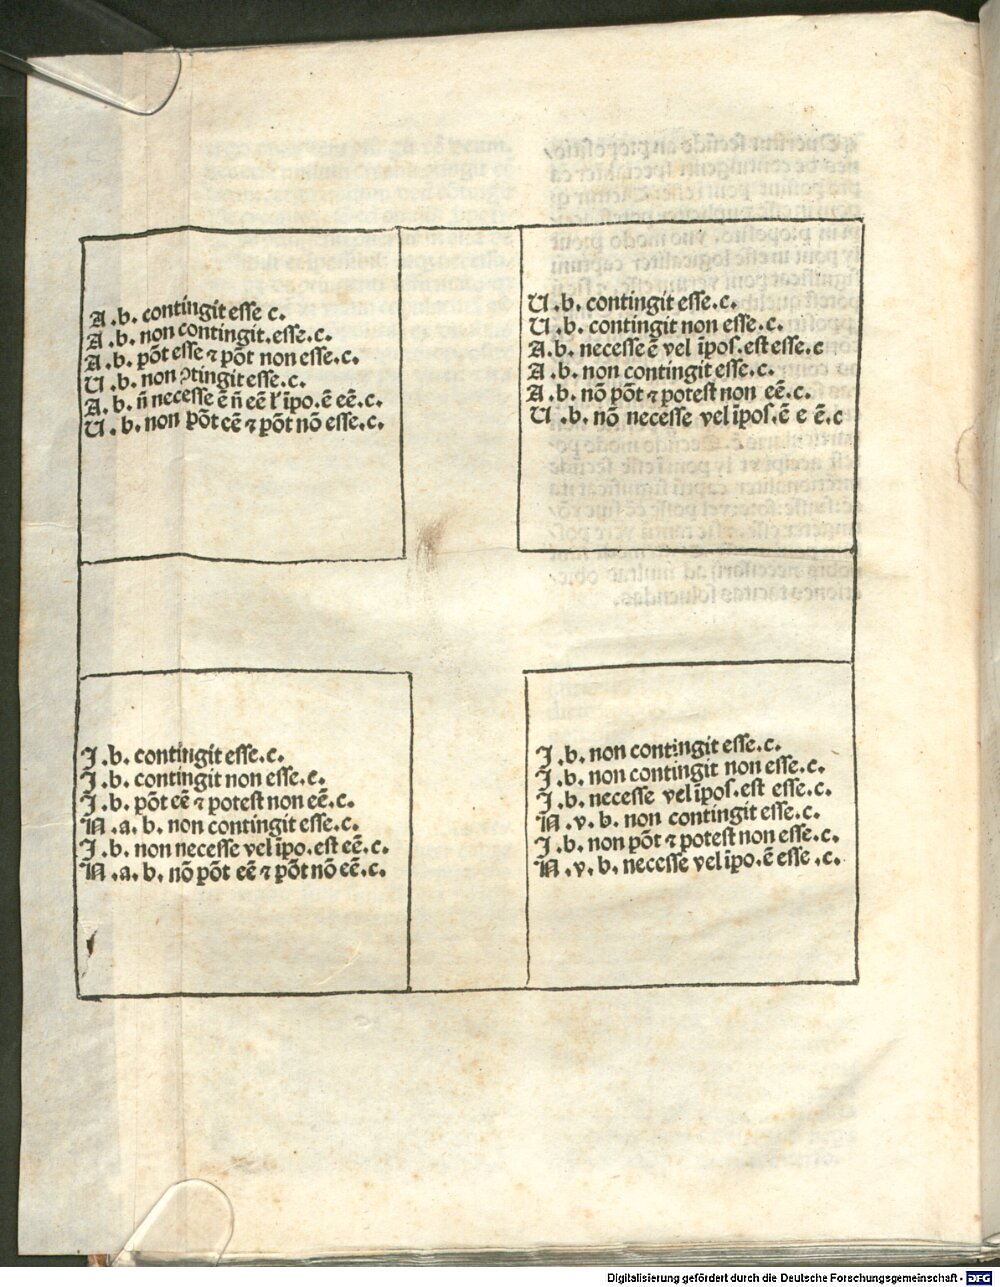 A .b. contingit esse c.
A .b. non contingit.esse.c.
A .b. põt esse ⁊ põt non esse.c.
U .b. non ꝯtingit esse.c.
A .b. ñ necesse ē ñ eē ł īpo.ē eē.c.
U .b. non põt eē ⁊ põt nõ esse.c.
U .b. contingit esse.c.
U .b. contingit non esse.c.
A .b. necesse ē vel īpos.est esse.c
A .b. non contingit esse.c.
A .b. nõ põt ⁊ potest non eē.c.
U .b. nõ necesse vel īpos.ē e ē.c
I .b. contingit esse.c.
I .b. contingit non esse.c.
I .b. põt eē ⁊ potest non eē.c.
N .a. b. non contingit esse.c.
I .b. non necesse vel īpo.est eē.c.
N .a. b. nõ põt eē ⁊ põt nõ eē.c.
I .b. non contingit esse.c.
I .b. non contingit non esse.c.
I .b. necesse vel īpos.est esse.c.
N .v. b. non contingit esse.c.
I .b. non põt ⁊ potest non esse.c.
N .v. b. necesse vel īpo.ē esse .c.
Digitalisierung gefördert durch die Deutsche Forschungsgemeinschaft - DFG